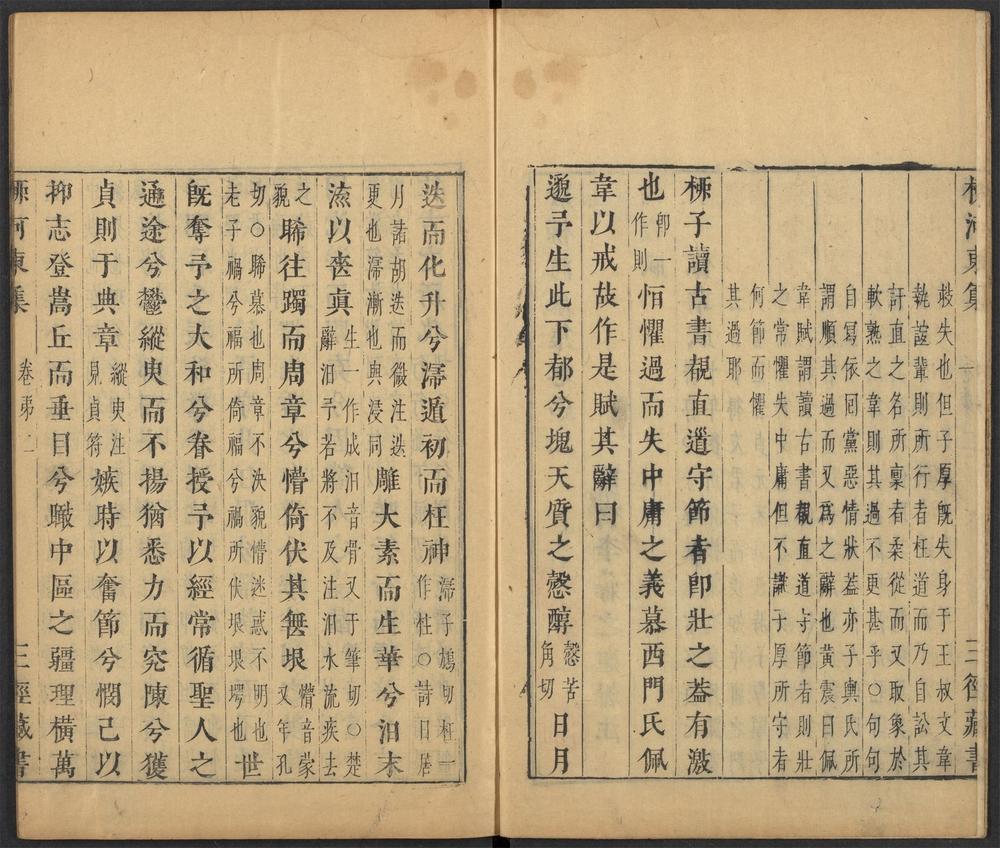 柳河東集 三徑藏書
歧失也但子厚既失身于王叔文韋
執誼輩則所行者枉道而乃自訟其
訐直之名所稟者柔從而又取象於
軟熟之韋則其過不更甚乎○句句
自冩依囘黨惡情狀葢亦子輿氏所
謂順其過而又爲之辭也黄震曰佩
韋賦謂讀古書覩直道守節者則壯
之常懼失中庸但不識子厚所守者
何節而懼
其過耶
柳子讀古書覩直道守節者卽壯之葢有激
也卽一作則恒懼過而失中庸之義慕西門氏佩
韋以戒故作是賦其辭曰
邈予生此下都兮塊天質之慤醇慤苦角切日月
迭而化升兮濅遁初而枉神濅子鴆切枉一作性○詩日居
月諸胡迭而微注迭更也濅漸也與浸同雕大素而生華兮汨末
流以喪眞生一作成汨音骨又于筆切○楚辭汨予若將不及注汨水流疾去
之貌睎往躅而周章兮懵倚伏其無垠懵音蒙又年孔
切○睎慕也周章不決貌懵迷惑不明也老子禍兮福所倚福兮禍所伏垠垠堮也世
既奪予之大和兮眷授予以經常循聖人之
通途兮鬱縱臾而不揚猶悉力而究陳兮獲
貞則于典章縱臾注見貞符嫉時以奮節兮憫己以
抑志登嵩丘而垂目兮瞰中區之疆理橫萬
柳河東集 卷弟二 二 三徑藏書